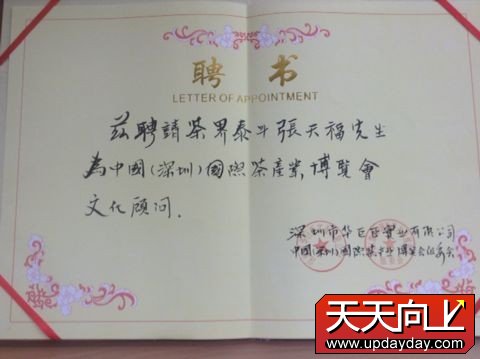 聘书
LETTER OF APPOINTMENT
兹聘請茶界泰斗張天福先生
為中國(深圳)國際茶產業博覽會
文化顾问.
深圳市华巨臣實业有限公司
中國(深圳)國際茶业博览会组委会
天天向上
www.updayday.com